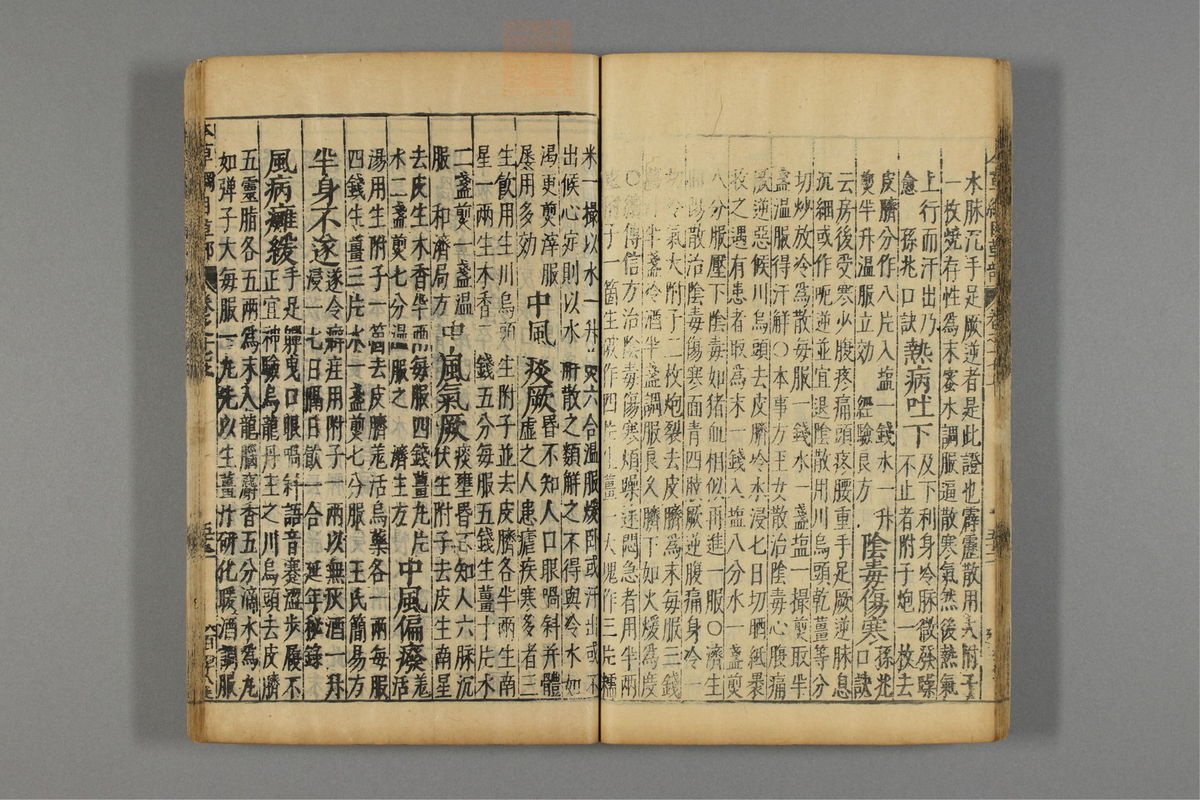 水脉沉手足厥逆者是此證也霹靂散用大附子
一枚燒存性為末蜜水調服逼散寒氣然後熱氣
上行而汗出乃愈
孫兆口訣 熱病吐下及下利身冷脉微發躁
不止者附子炮一枚去
皮臍分作八片入鹽一錢水一升
煎半升溫服立效 經驗良方 陰毒傷寒孫兆口訣
云房後受寒少腹疼痛頭疼腰重手足厥逆脉息
沉細或作呃逆並宜退陰散用川烏頭乾薑等分
切炒放冷為散每服一錢水一盞鹽一撮煎取半
盞溫服得汗解○本事方玉女散治陰毒心腹痛
厥逆惡候川烏頭去皮臍冷水浸七日切晒紙裹
收之遇有患者取為末一錢入鹽八分水一盞煎
八分服壓下陰毒如猪血相似再進一服○濟生
散治陰毒傷寒面青四肢厥逆腹痛身冷一
切冷氣大附子二枚炮裂去皮臍為末每服三錢
半盞冷酒半盞調服良久臍下如火煖為度
○續傳信方治陰毒傷寒煩躁迷悶急者用半兩
子一箇生破作四片生薑一大塊作三片糯
米一撮以水一升煎六合溫服煖臥或汗出或不
出候心定則以水解散之類解之不得與冷水如
渴更煎滓服
屢用多効 中風痰厥昏不知人口眼喎斜并體
虛之人患瘧疾寒多者三
生飲用生川烏頭生附子並去皮臍各半兩生南
星一兩生木香二錢五分每服五錢生薑十片水
二盞煎一盞溫
服 和濟局方 中風氣厥痰壅昏不知人六脉沉
伏生附子去皮生南星
去皮生木香半兩每服四錢薑九片
水二盞煎七分溫服之 濟生方 中風偏廢羗活
湯用生附子一箇去皮臍羗活烏藥各一兩每服
四錢生薑三片水一盞煎七分服 王氏簡易方
半身不遂遂令癖疰用附子一兩以無灰酒一升
浸一七日隔日飲一合 延年秘錄
風病癱緩手足軃曳口眼喎斜語音蹇澀步履不
正宜神驗烏龍丹主之川烏頭去皮臍
五靈脂各五兩為末入龍腦麝香五分滴水為丸
如彈子大每服一丸先以生薑汁研化暖酒調服
本草綱目草部